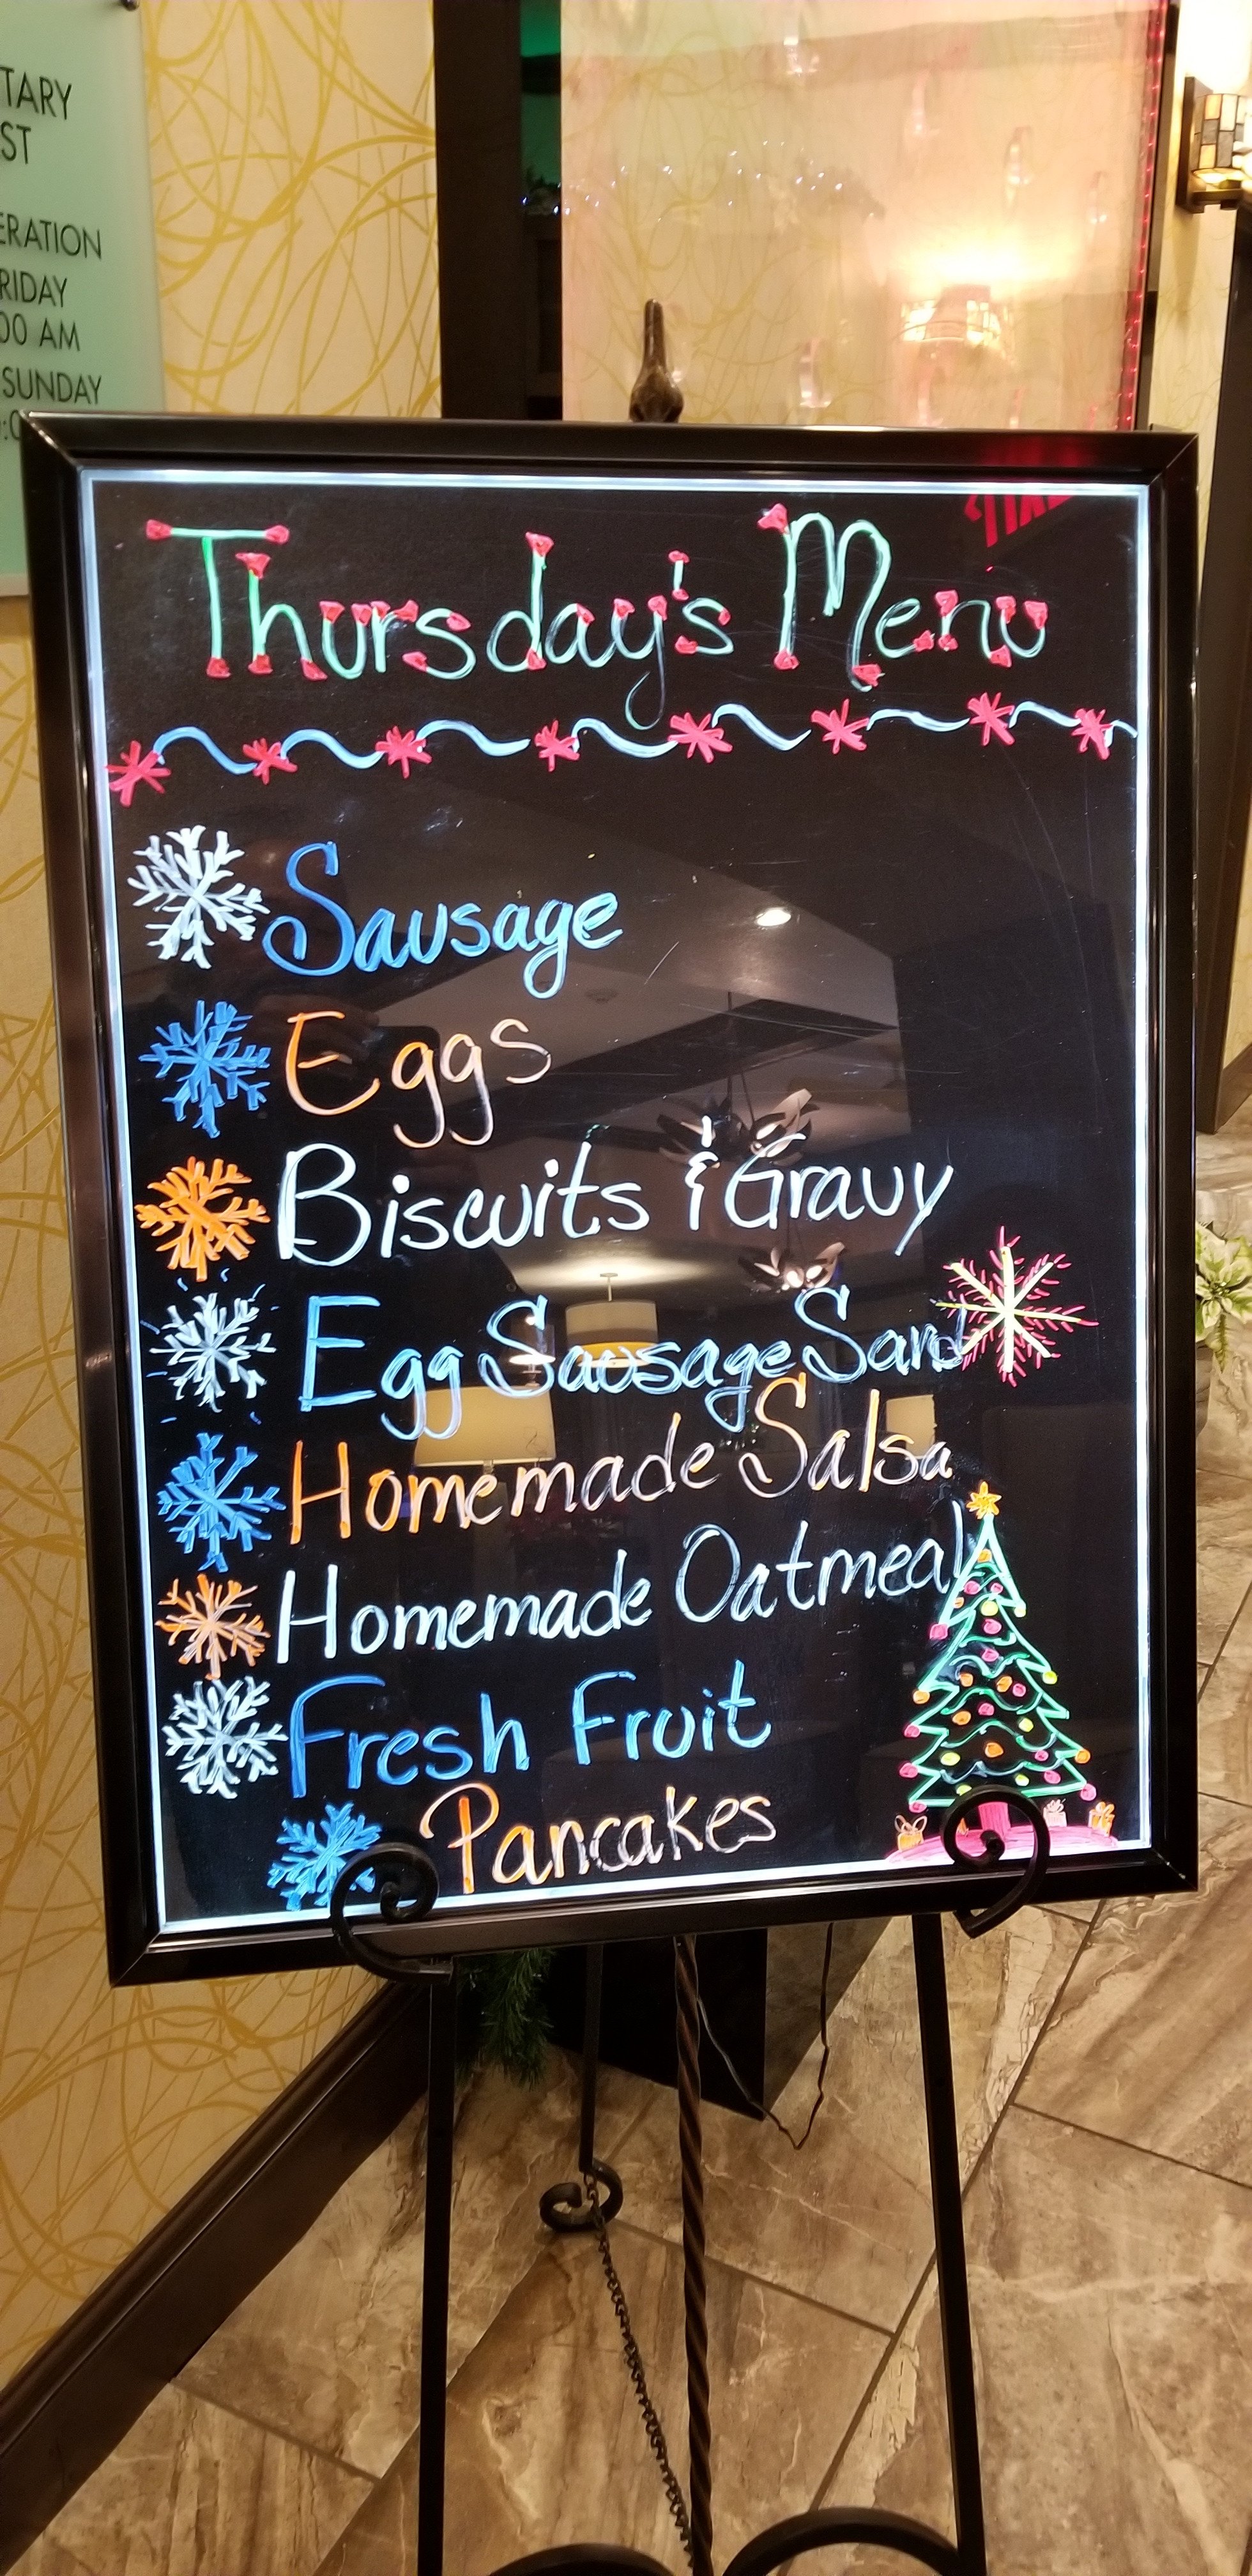 TARY
ST
ERATION
RIDAY
00 AM
SUNDAY
Thursday's Menu
Sausage
Eggs
Biscuits & Gravy
Egg Sausage Sand
Homemade Salsa
Homemade Oatmeal
Fresh Fruit
Pancakes